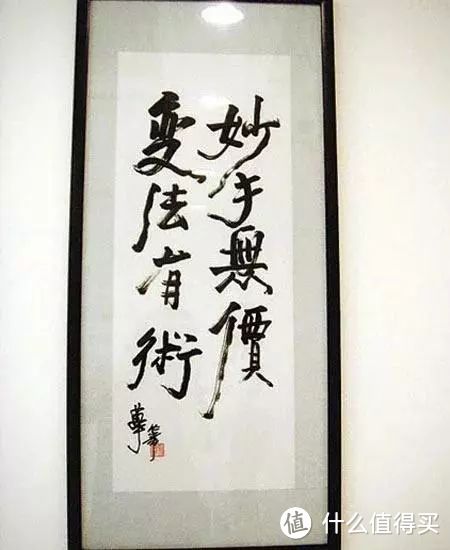 妙手無價
变法有術
值 什么值得买